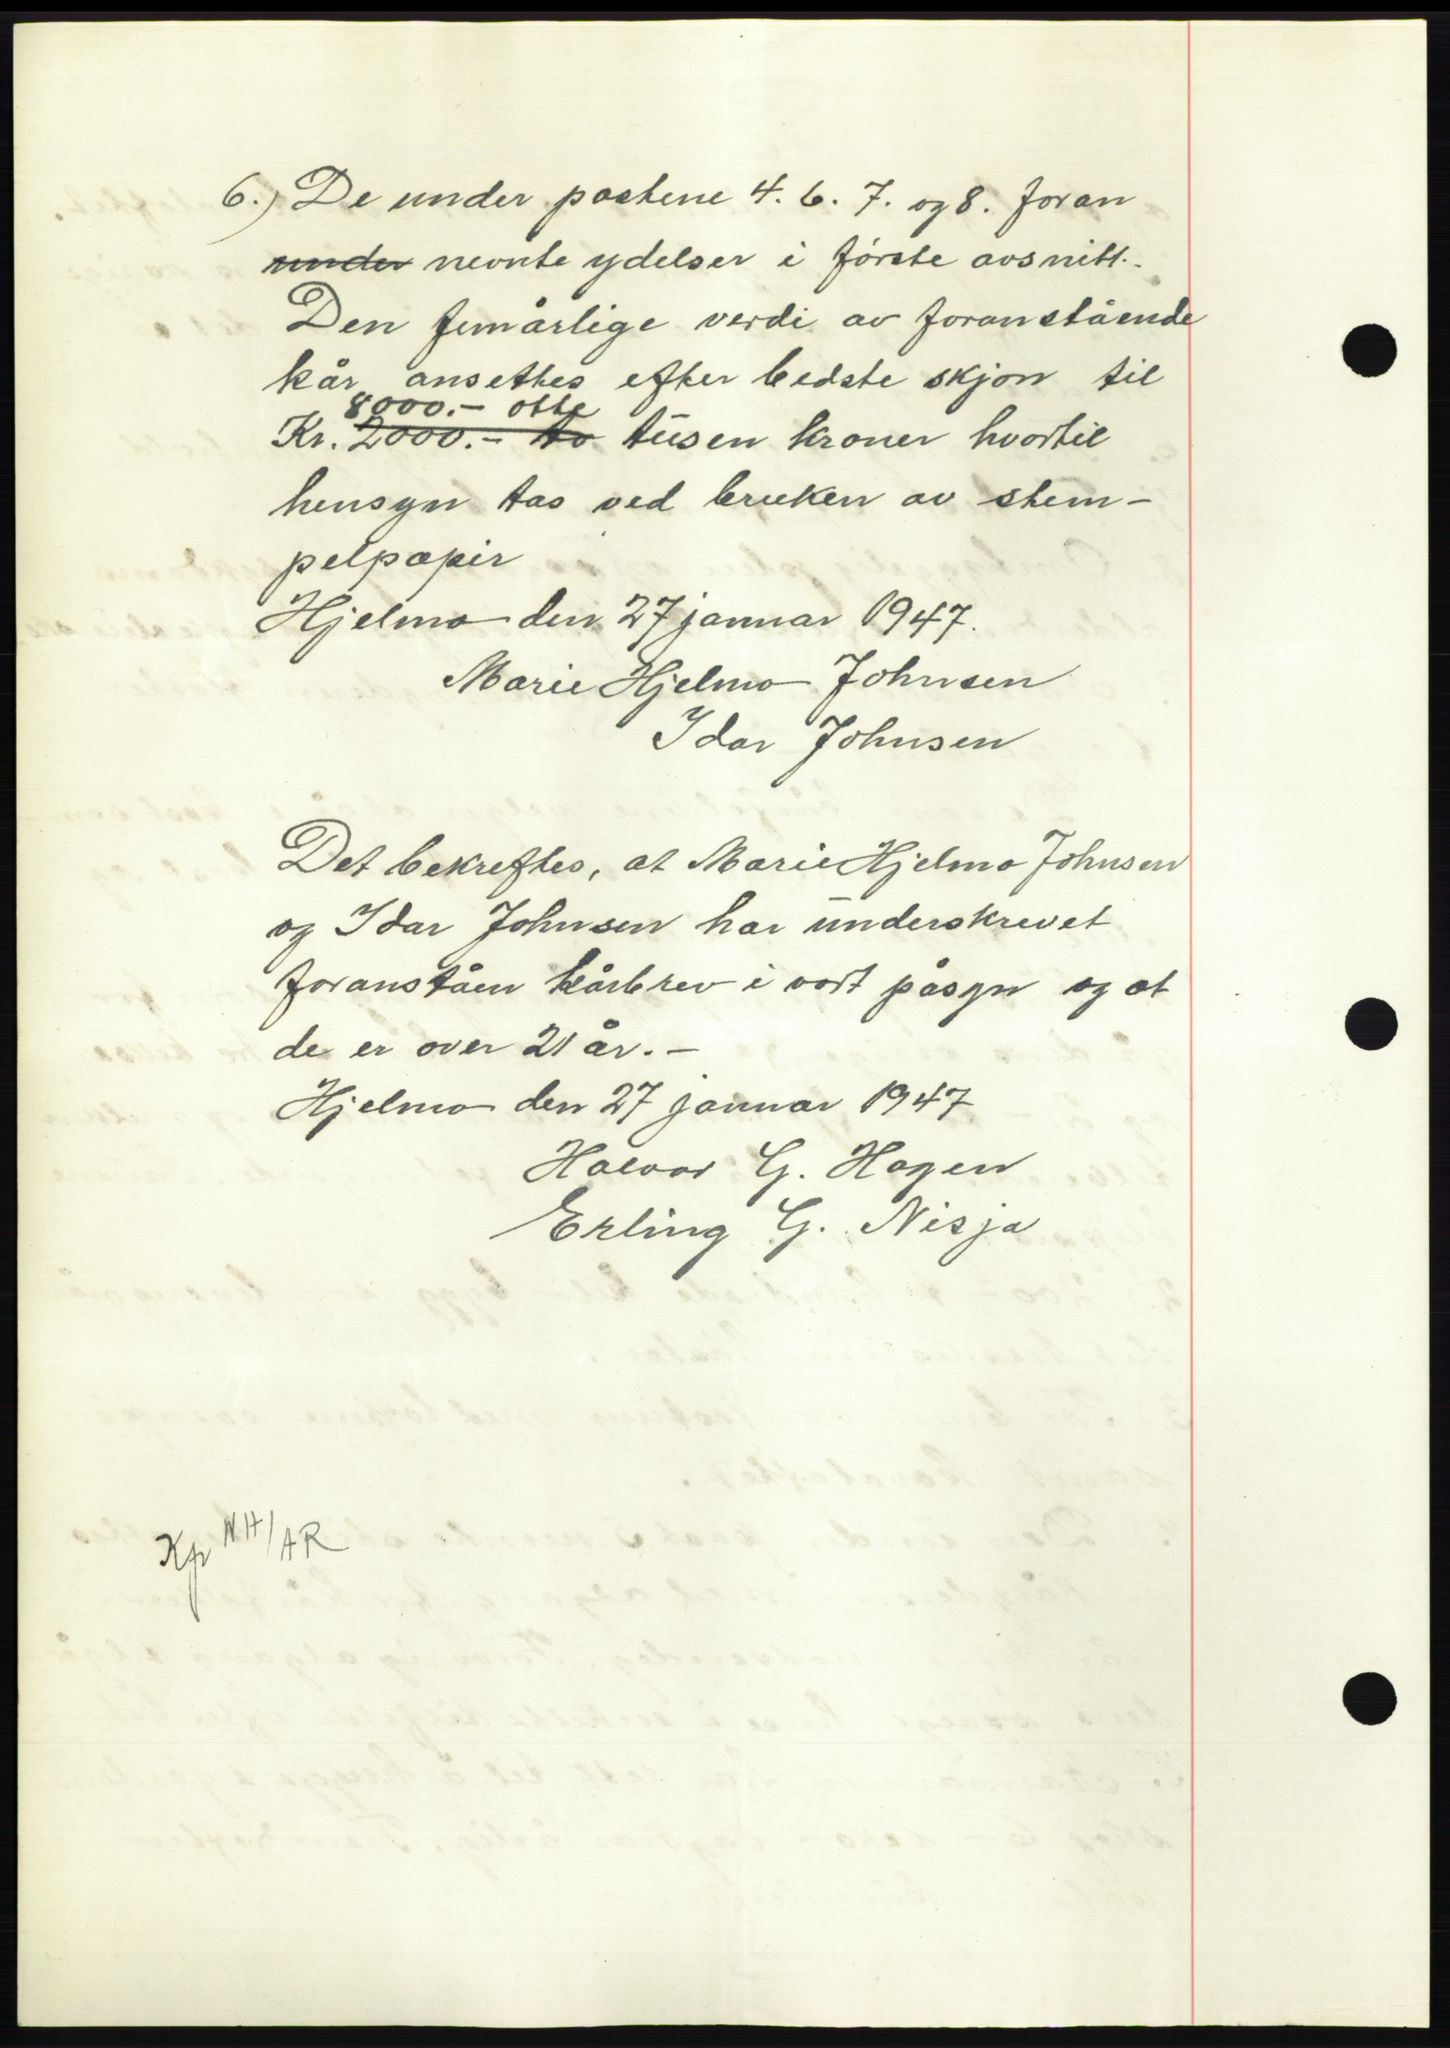 6.) De under postene 4. 6. 7. og 8. foran
under nevnte ydelser i første avsnitt.-
Den femårlige verdi av foranstående
kår ansettes efter bedste skjøn til
8000.- otte
Kr. 2000.- to tusen kroner hvortil
hensyn tas ved bruken av stem-
pelpapir
Hjelmo den 27 januar 1947.
Marie Hjelmo Johnsen
Idar Johnsen
Det bekreftes, at Marie Hjelmo Johnsen
og Idar Johnsen har underskrevet
foranståen kårbrev i vort påsyn og at
de er over 21 år.-
Hjelmo den 27 januar 1947
Halvor G. Hagen
Erling G. Nisja
Kp NH/AR